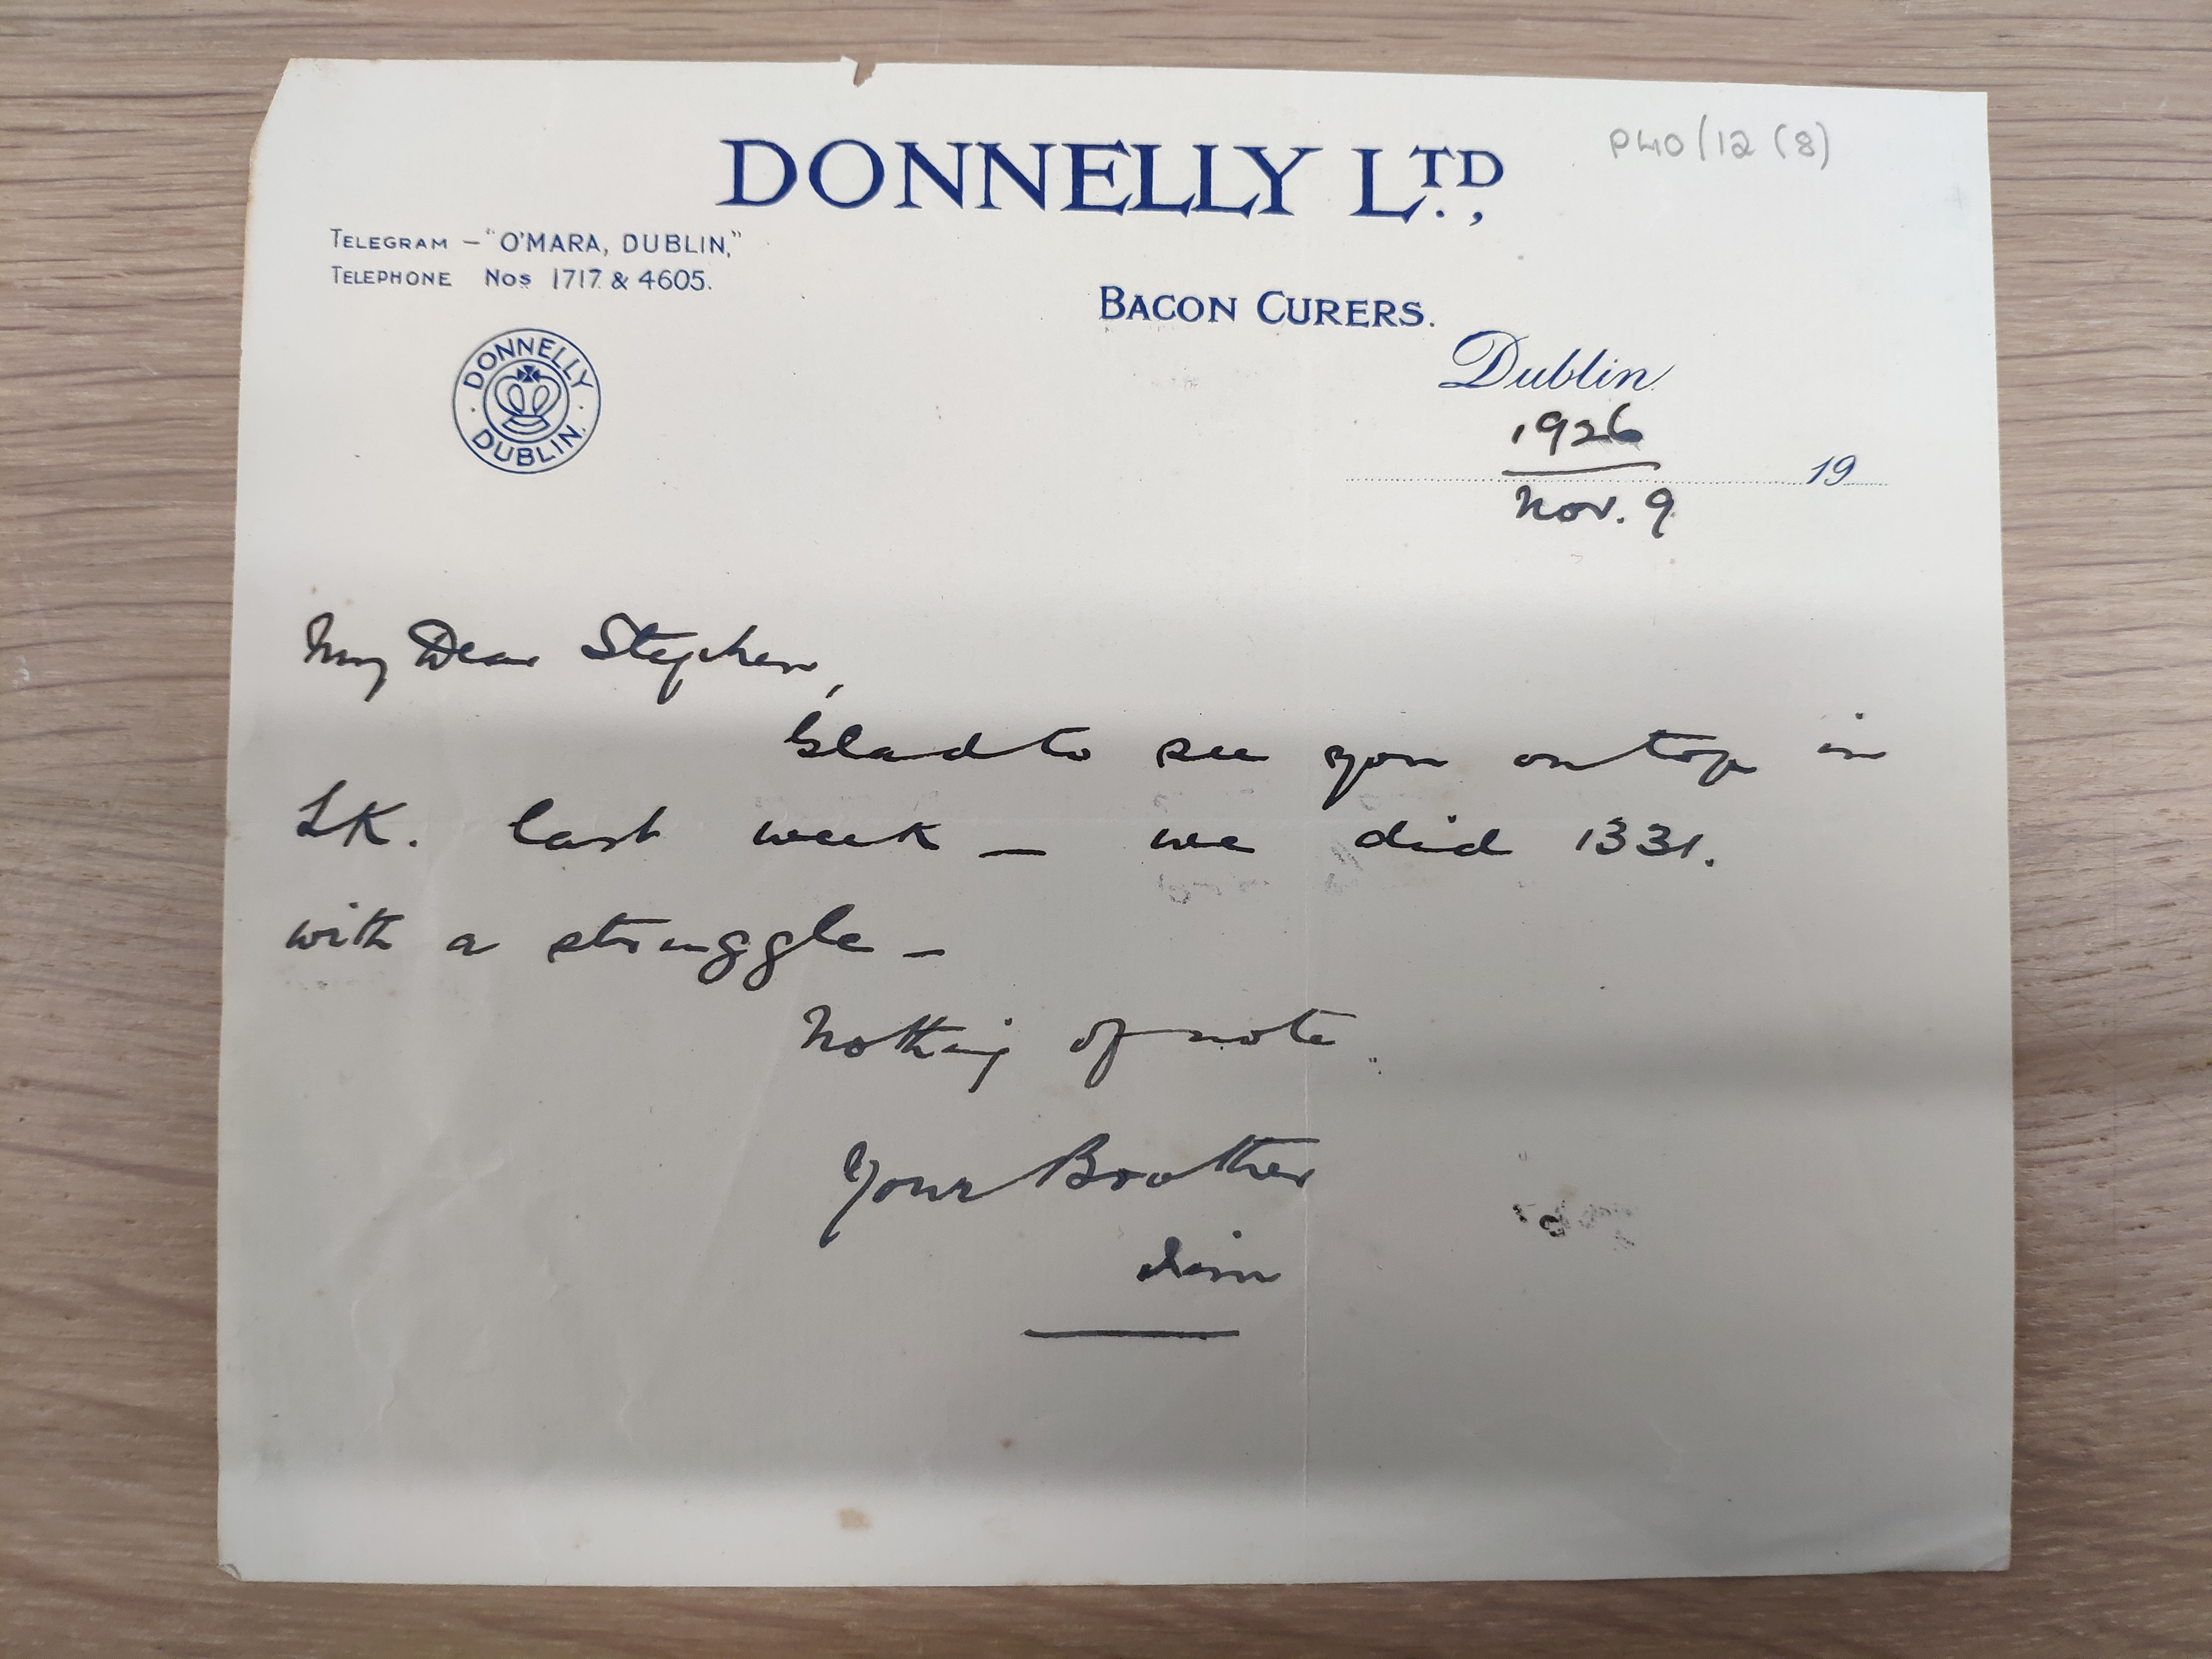 P40/12 (8)
DONNELLY LTD.,
TELEGRAM – "O'MARA, DUBLIN,"
TELEPHONE Nos 1717 & 4605.
BACON CURERS.
DONNELLY
DUBLIN.
Dublin
1926
19
Nov. 9
My Dear Stephen,
Glad to see you on top in
LK. last week – we did 1331.
with a struggle –
Nothing of note.
Your Brother
Jim